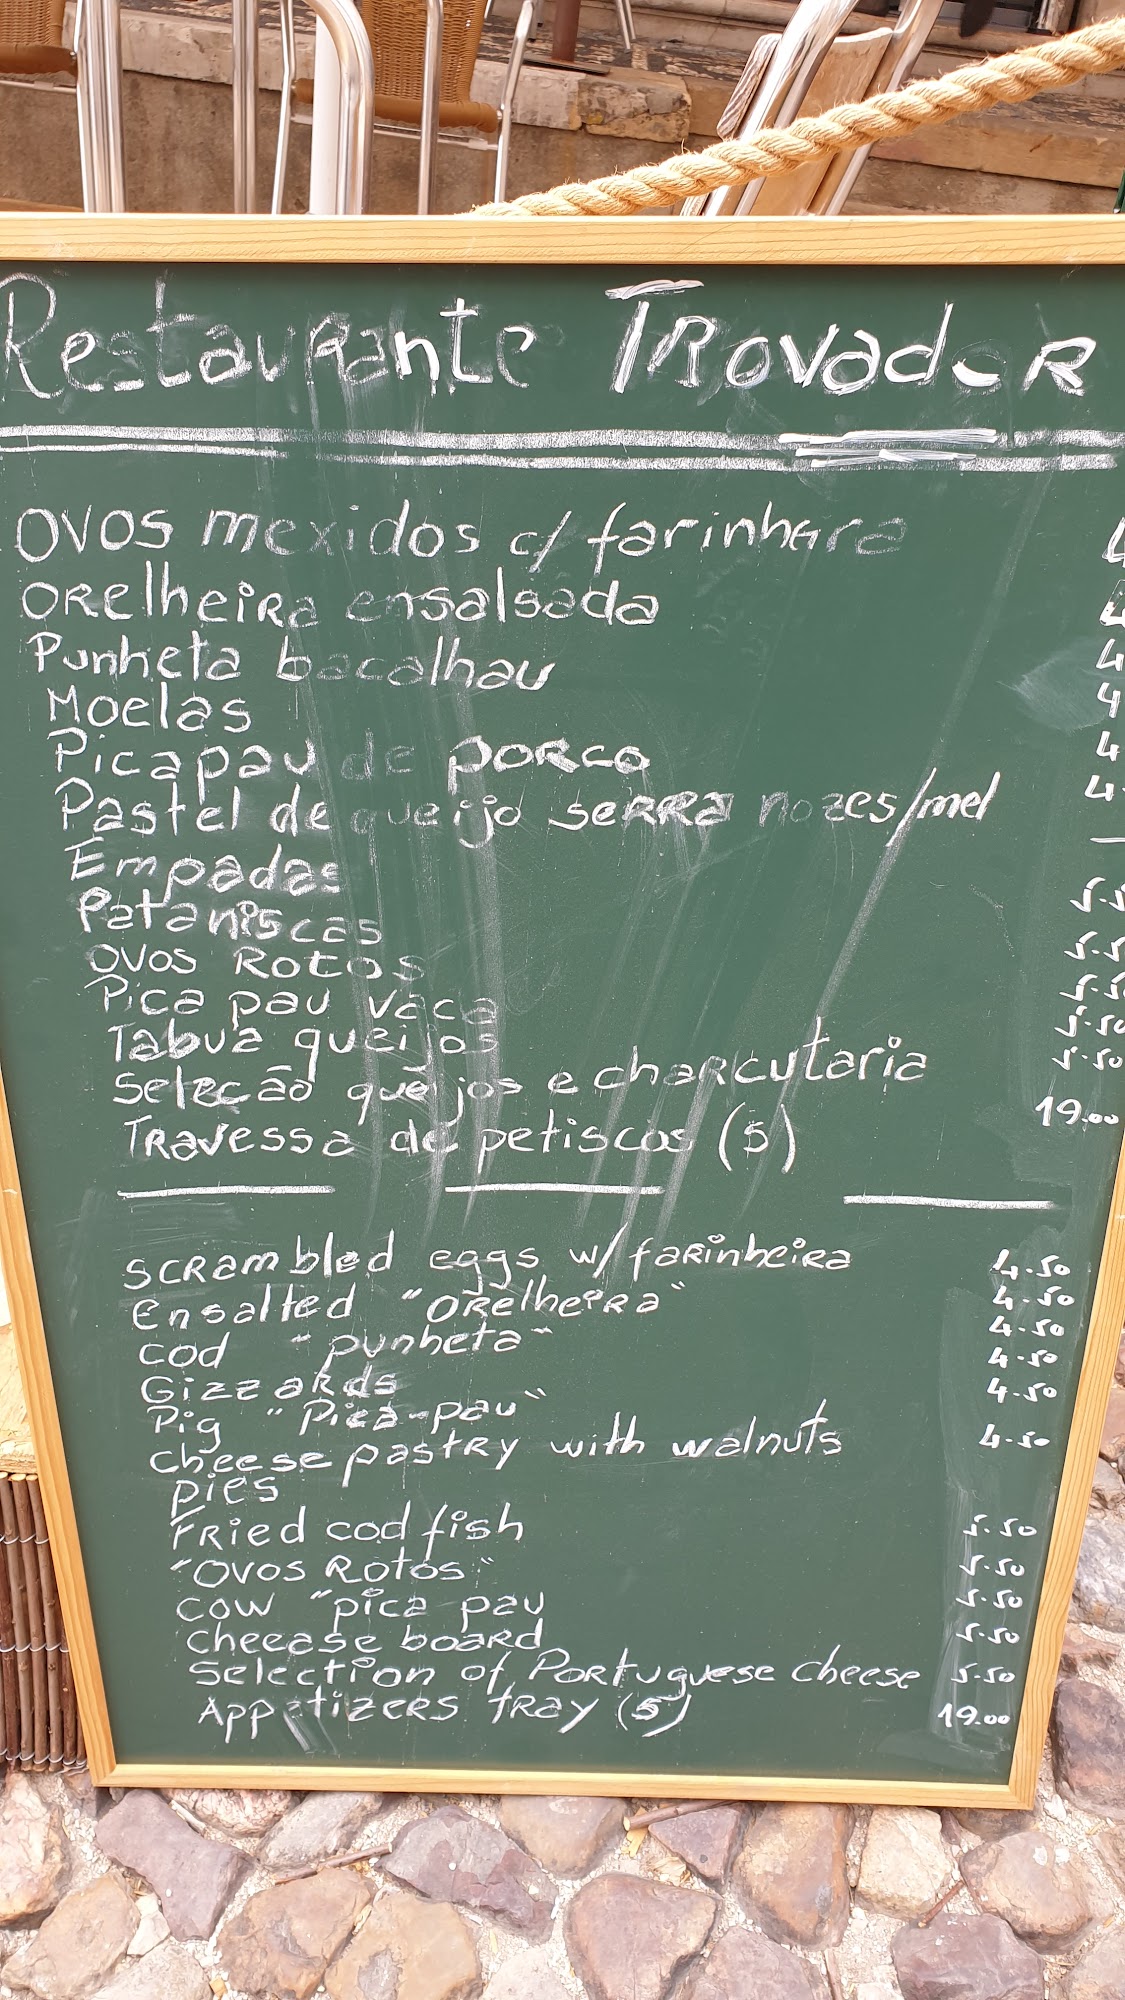 Restaurante Trovador
Ovos mexidos c/ farinhera
Orelheira ensalsada
Punheta bacalhau
Moelas
Picapau de porco
Pastel de queijo serra nozes/mel
Empadas
Pataniscas
Ovos Rotos
Pica pau vaca
Tabua queijos 5.50
Selecão queijos e charcutaria 5.50
Travessa de petiscos (5) 19.00
Scrambled eggs w/ farinheira 4.50
Ensalted "Orelheira" 4.50
Cod "punheta" 4.50
Gizzards 4.50
Pig "Pica-pau" 4.50
Cheese pastry with walnuts 4.50
Pies
Fried cod fish 5.50
"Ovos Rotos" 5.50
Cow "pica pau 5.50
Cheease board 5.50
Selection of Portuguese cheese 5.50
Appetizers tray (5) 19.00